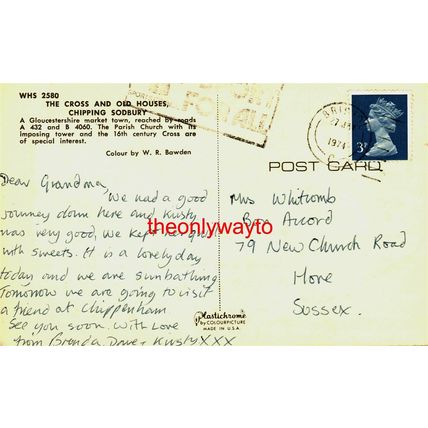 WHS 2580
THE CROSS AND OLD HOUSES,
CHIPPING SODBURY
A Gloucestershire market town, reached by roads
A 432 and B 4060. The Parish Church with its
imposing tower and the 16th century Cross are
of special interest.
Colour by W. R. Bawden
SPORT
FOR ALL
BRISTOL
1974
3P
POST CARD
Dear Grandma,
We had a good
journey down here and Kirsty
was very good, we kept her quiet
with sweets. It is a lovely day
today and we are sunbathing
Tomorrow we are going to visit
a friend at Chippenham
See you soon. With Love
from Brenda, Dave + Kirsty XXX
Mrs Whitcomb
Bon Accord
79 New Church Road
Hove
Sussex.
theonlywayto
Plastichrome
by COLOURPICTURE
MADE IN U.S.A.